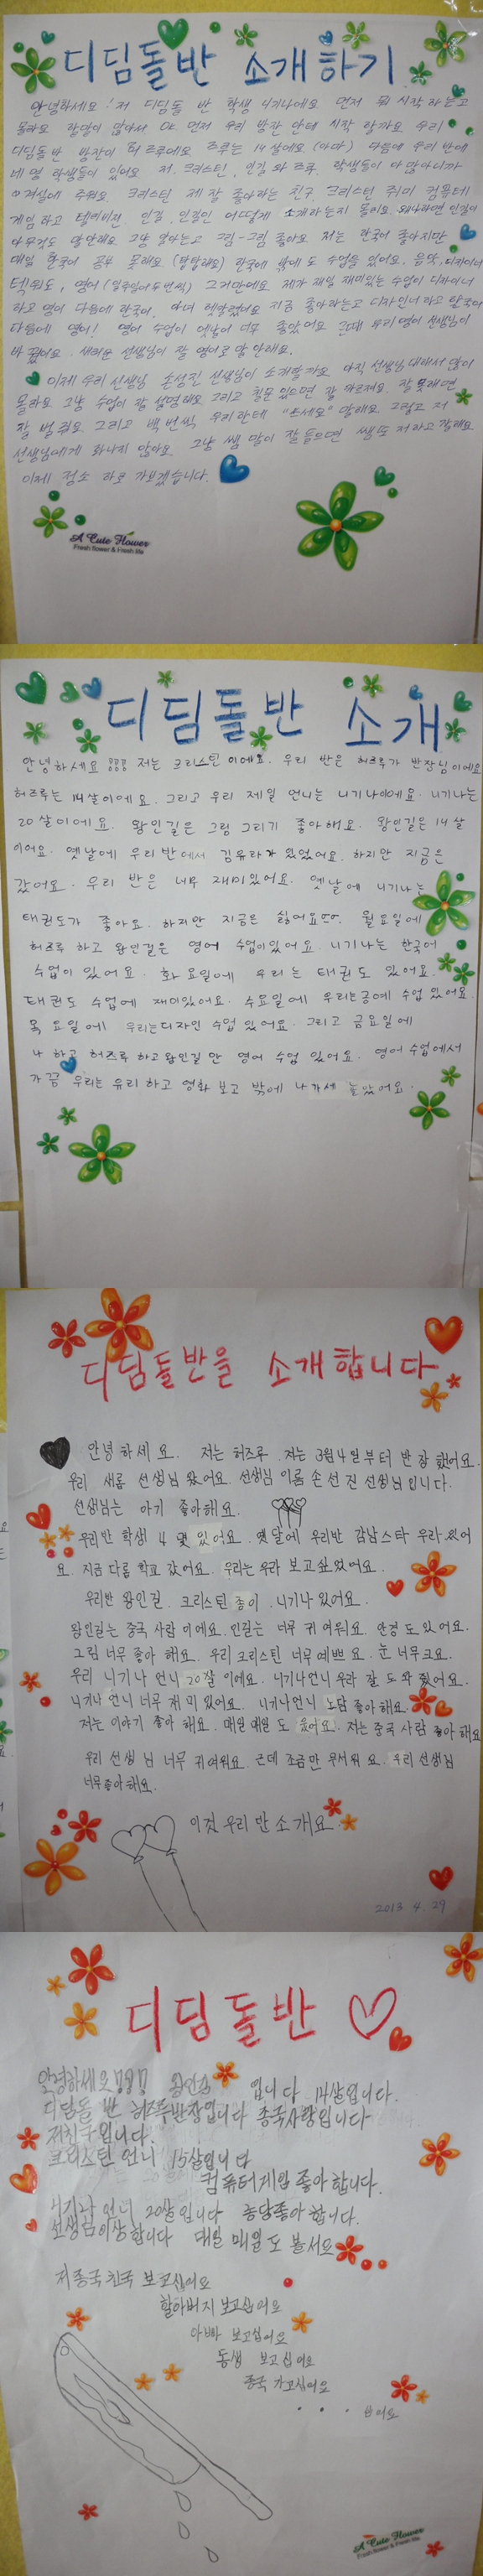 디딤돌반 소개하기
안녕하세요! 저 디딤돌 반 학생 니기나에요 먼저 뭐 시작 하는고
몰라요 할말이 많아서 먼저 우리 반장 한테 시작 할까요 우리
디딤돌반 반장이 허즈루에요 즈루는 14살에요 (아마) 다음에 우리 반에
네 명 학생들이 있어요 저. 크리스틴, 인길 와 즈루. 학생들이 다 많아니까
교실에 추워요. 크리스틴 제 잘 좋아하는 친구. 크리스틴 취미 컴퓨터
게임 하고 텔리비전 인길. 인길인 어떻게 소개하는지 몰라요 왜냐하면 인길이
아무것도 말안해요 그냥 앉아는고 그림-그림 좋아요 저는 한국어 좋아지만
매일 한국어 공부 못해요 (답답해요) 한국어 밖에 도 수업을 있어요. 음악, 디자이너
텍워도, 영어 (일주일에 두 번씩) 그거만에요 제가 제일 재미있는 수업이 디자이너
하고 영어 다음에 한국어.
다음에 영어! 영어 수업이 옛날에 너무 좋았어요 근데 우리 영어 선생님이
바꿨어요. 새로운 선생님이 잘 영어로 말 안해요.
이제 우리 선생님 손선진 선생님이 소개할까요 아직 선생님 대해서 많이
몰라요 그냥 수업이 잘 설명해요 그리고 질문 있으면 잘 가르쳐요. 잘 못해면
그리고 백 번씩 우리한테 "쓰세요" 말해요 그렇고 저
선생님에게 화나지 않아요. 그냥 쌤 말이 잘 들으면
이제 점소 하로 가보겠습니다.
A Cute Flower
Fresh flower & Fresh life
디딤돌반 소개
안녕하세요 !!! 저는 크리스틴 이에요. 우리 반은 허즈루가 반장님이에요
허즈루는 14살이에요. 그리고 우리 제일 언니는 니기나이에요. 니기나는
20살이에요. 왕인길은 그림 그리기 좋아해요. 왕인길은 14살
이에요. 옛날에 우리 반에서 김유라가 있었어요. 하지만 지금은
갔어요. 우리 반은 너무 재미있어요. 옛날에 니기나는
태권도가 좋아요. 하지만 지금은 싫어요. 월요일에
허즈루 하고 왕인길은 영어 수업이있어요 니기나는 한국어
수업이 있어요. 화요일에 우리는 태권도 있어요.
태권도 수업에 재미있어요. 수요일에 우리는공예 수업 있어요.
목요일에 우리는디자인 수업 있어요. 그리고 금요일에
나 하고 허즈루 하고왕인길 만 영어 수업 있어요. 영어 수업에서
가끔 우리는 유리 하고 영화 보고 밖에 나가세 놀았어요.
디딤돌반을 소개합니다
안녕하세요. 저는 허즈루. 저는 3월4일부터 반장 했어요.
우리 새롭 선생님 왔어요. 선생님 이름 손선진 선생님입니다.
선생님는 아기 좋아해요.
우리반 학생 4 몇 있어요. 옛달에 우리반 감남스타 우라 있어
요. 지금 다릉 학교 갔어요. 우리는 우라 보고싶었어요.
우리반 왕인길. 크리스틴 종이. 니기나 있어요.
왕인길는 중국 사람 이에요. 인길는 너무 귀여워요. 안경도 있어요.
그림 너무 좋아 해요. 우리 크리스틴 너무예쁘요. 눈 너무크요.
우리 니기나 언니 20살 이에요. 니기나언니 우라 잘 도와 줬어요.
니기나 언니 너무 재미 있어요. 니기나언니 노담 좋아해요.
저는 이야기 좋아 해요. 매일 매일 도 웃어요. 저는 중국 사람 좋아 해요
우리 선생님 너무 귀여워요. 근데 조금만 무서워 요. 우리 선생님
너무좋아해요.
이것 우리 반 소개요
2013 4. 29
디딤돌반
안경하세요!!! 왕인길 입니다 14살입니다.
디딤돌 반 허즈루반장입니다 중국사람입니다
저친구입니다.
크리스틴 언니 15살입니다
컴퓨터게임 좋아 합니다.
니기나 언니 20살입니다 농담좋아 합니다.
선생님이상합니다 매일 매일 도 볼서요
저 중국 친국 보고십어요
할아버지 보고십어요
아빠 보고십어요
동생 보고십어요
중국 가고십어요
A Cute Flower
Fresh flower & Fresh life